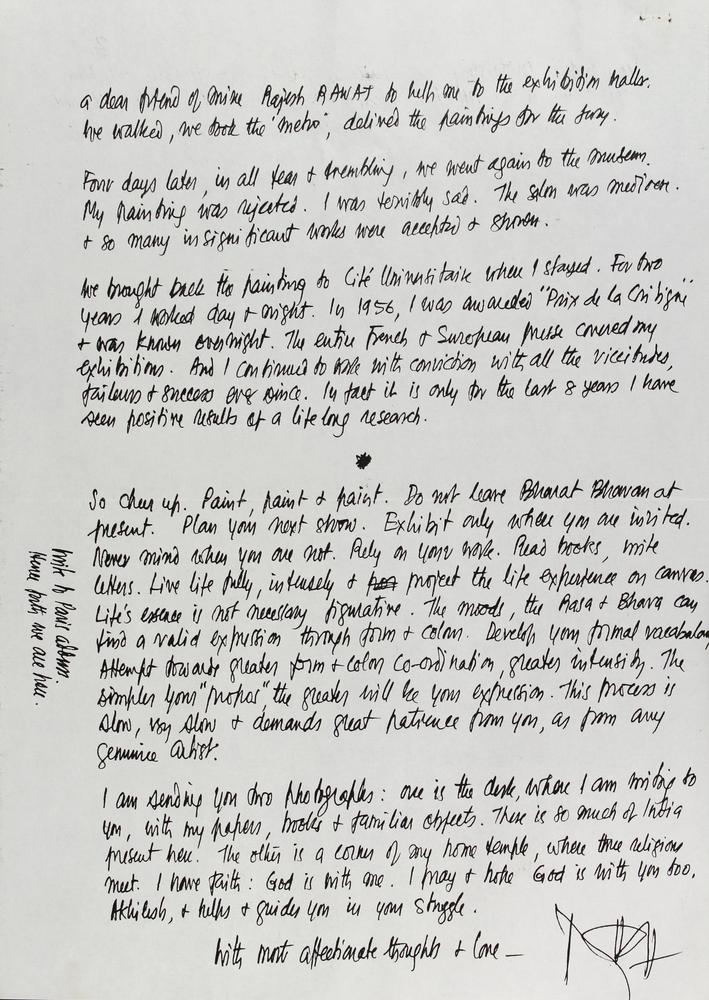 a dear friend of mine Rajesh RAWAT to help me to the exhibition halls.
We walked, we took the "metro", delived the paintings for the Jury.
Four days later, in all fear & trembling, we went again to the museum.
My painting was rejected. I was terribly sad. The salon was mediocre.
& so many insignificant works were accepted & shown.
We brought back the painting to Cité Universitaire where I stayed. For two
years I worked day & night. In 1956, I was awarded "Prix de la Critique"
& was known overnight. The entire French & European presse covered my
exhibitions. And I continued to work with conviction with all the viccitudes,
failures & success ever since. In fact it is only for the last 8 years I have
seen positive results of a life long research.
So cheer up. Paint, paint & paint. Do not leave Bharat Bhavan at
present. Plan your next show. Exhibit only where you are invited.
Never mind when you are not. Rely on your work. Read books, write
letters. Live life fully, intensely & project the life experience on canvas.
Life's essence is not necessary figurative. The moods, the Rasa & Bhava can
find a valid expression through form & colour. Develop your formal vocabulary,
Attempt towards greater form & color co-ordination, greater intensity. The
simpler your "propos", the greater will be your expression. This process is
slow, very slow & demands great patience from you, as from any
genuine artist.
I am sending you two photographs: one is the desk, where I am writing to
you, with my papers, books & familiar objects. There is so much of India
present here. The other is a corner of my home temple, where three religions
meet. I have faith: God is with me. I pray & hope God is with you too,
Akhilesh, & helps & guides you in your struggle.
With most affectionate thoughts & love —
Write to Paris address.
Hence forth we are here.